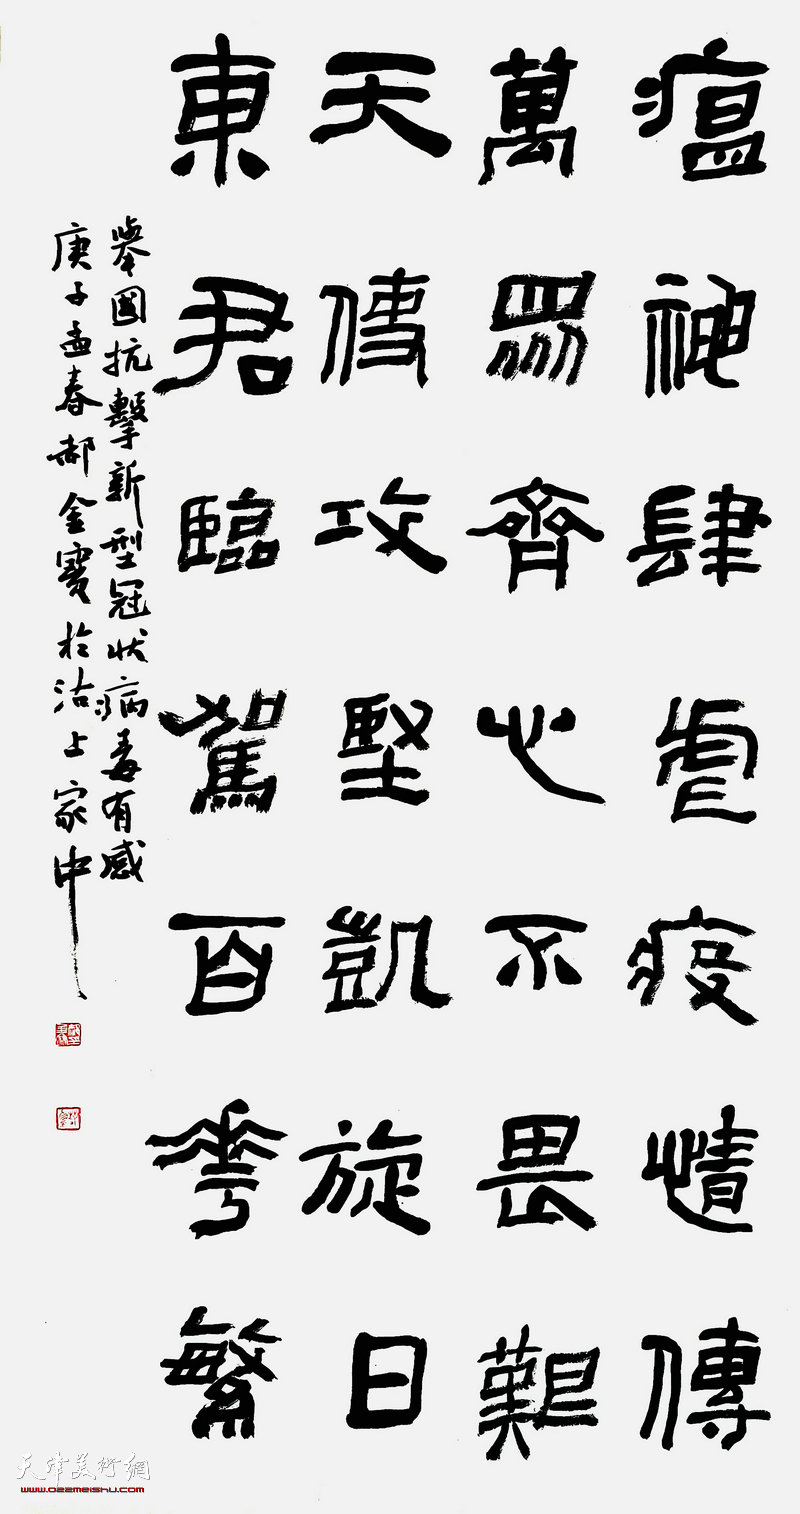 瘟神肆虐疫情傳
萬眾齊心不畏艱
天使攻堅凱旋日
東君臨駕百花繁
舉國抗擊新型冠狀病毒有感
庚子孟春郝金寶於沽上家中
天津美術網
www.022meishu.com